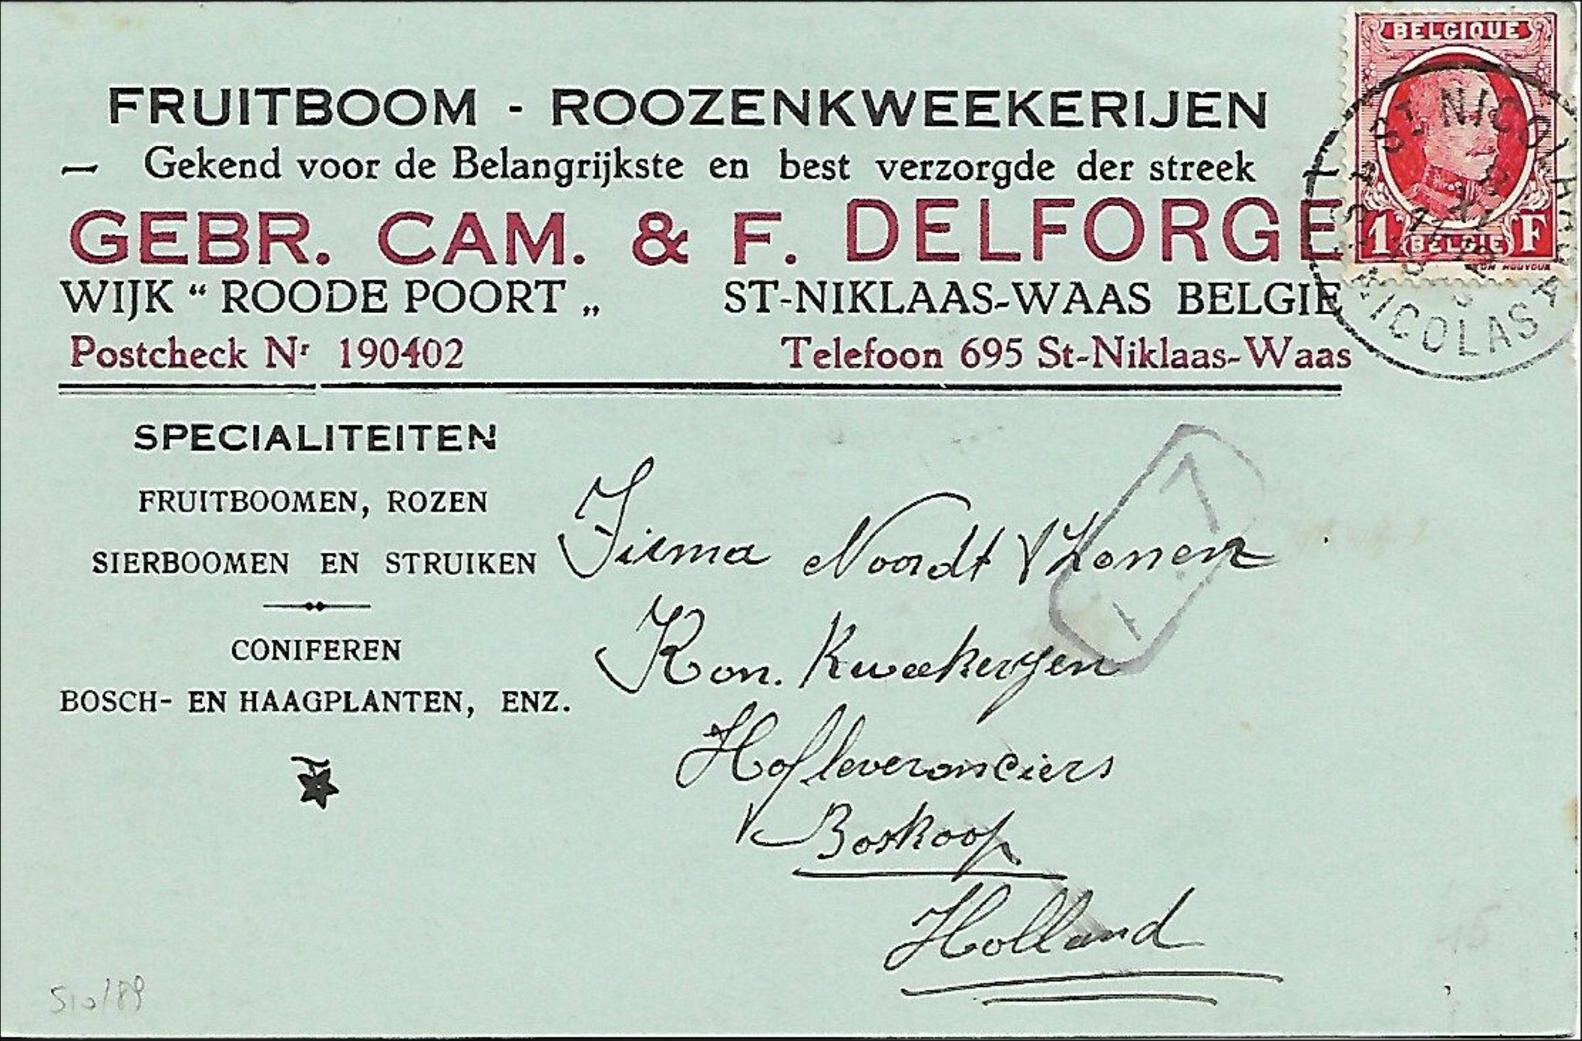 FRUITBOOM - ROOZENKWEEKERIJEN
— Gekend voor de Belangrijkste en best verzorgde der streek
GEBR. CAM. & F. DELFORGE
WIJK “ ROODE POORT „ ST-NIKLAAS-WAAS BELGIE
Postcheck Nr 190402 Telefoon 695 St-Niklaas-Waas
BELGIQUE
1 BELGIE F
ST NICOLAAS
NICOLAS
SPECIALITEITEN
FRUITBOOMEN, ROZEN
SIERBOOMEN EN STRUIKEN
CONIFEREN
BOSCH- EN HAAGPLANTEN, ENZ.
Firma Noordt & Zonen
Kon. Kweekerijen
Hofleveranciers
Boskoop
Holland
510/89